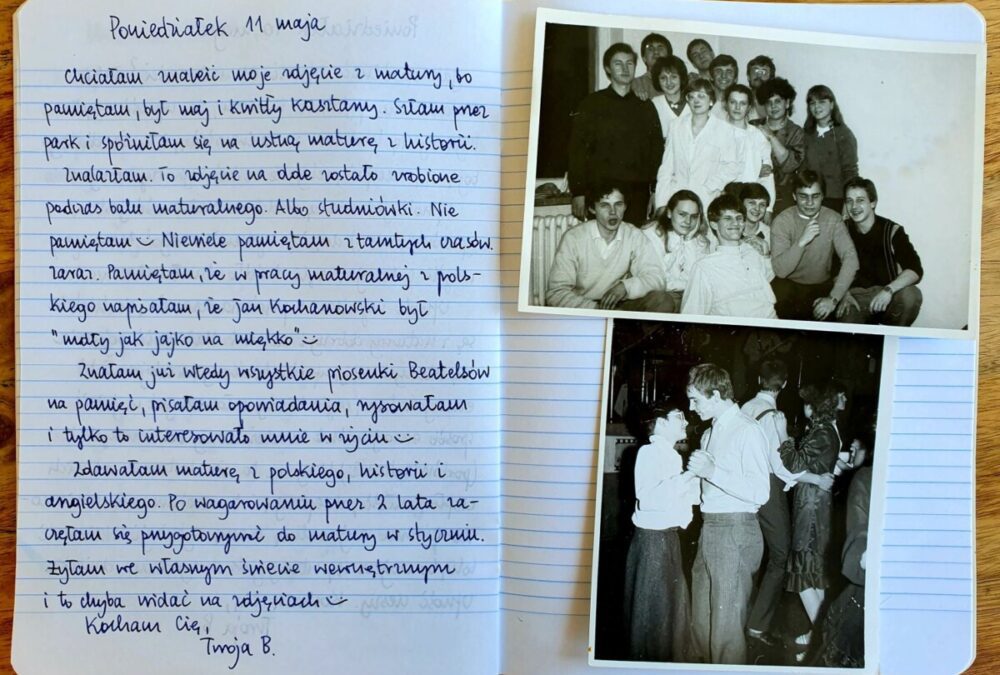 Poniedziałek 11 maja
Chciałam znaleźć moje zdjęcie z matury, bo
pamiętam, był maj i kwitły kasztany. Szłam przez
park i spóźniłam się na ustną maturę z historii.
Znalazłam. To zdjęcie na dole zostało zrobione
podczas balu maturalnego. Albo studniówki. Nie
pamiętam Niewiele pamiętam z tamtych czasów.
zaraz. Pamiętam, że w pracy maturalnej z pols-
kiego napisałam, że Jan Kochanowski był
"mdły jak jajko na miękko"
Znałam już wtedy wszystkie piosenki Beatelsów
na pamięć, pisałam opowiadania, rysowałam
i tylko to interesowało mnie w życiu
Zdawałam maturę z polskiego, historii i
angielskiego. Po wagarowaniu przez 2 lata za-
częłam się przygotowywać do matury w styczniu.
Żyłam we własnym świecie wewnętrznym
i to chyba widać na zdjęciach
Kocham Cię,
Twoja B.